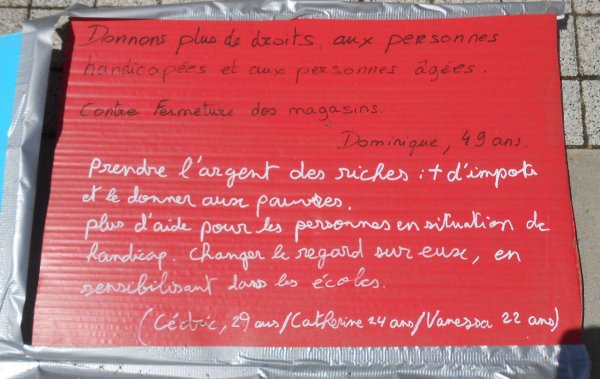 Donnons plus de droits, aux personnes
handicapées et aux personnes âgées.
Contre Fermeture des magasins.
Dominique, 49 ans.
Prendre l'argent des riches : + d'impots
et le donner aux pauvres.
plus d'aide pour les personnes en situation de
handicap. Changer le regard sur eux, en
sensibilisant dans les écoles.
(Cédric, 29 ans/Catherine 24 ans/Vanessa 22 ans)